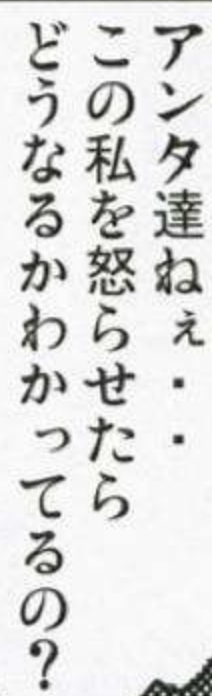 アンタ達ねぇ・・
この私を怒らせたら
どうなるかわかってるの？